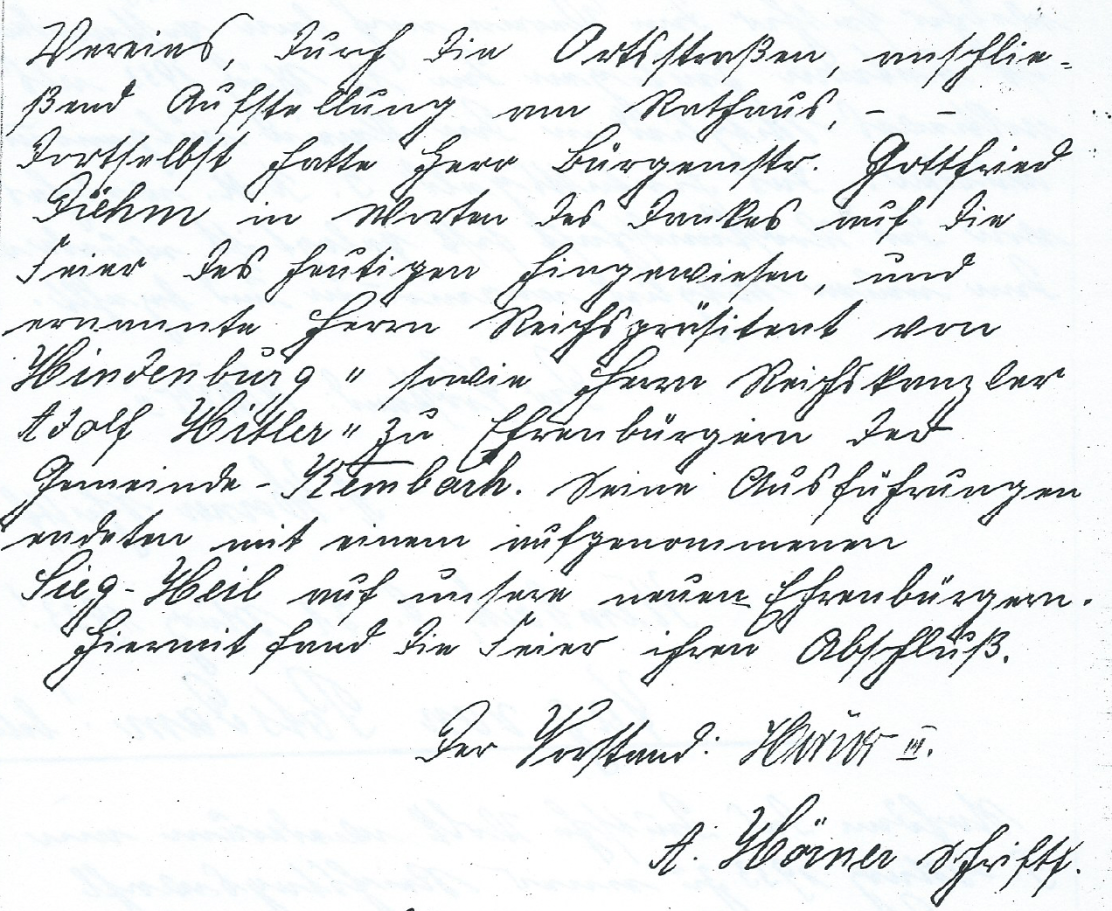 Vereins, durch die Ortsstraßen, anschlie=
ßend Aufstellung am Rathaus. – –
Dortselbst hatte Herr Bürgermstr. Gottfried
Diehm in Worten des Dankes auf die
Feier des heutigen hingewiesen, und
ernannte Herrn Reichspräsitent von
Hindenburg" sowie Herrn Reichskanzler
Adolf Hitler" zu Ehrenbürgern der
Gemeinde-Kembach. Seine Ausführungen
endeten mit einem aufgenommenen
Sieg-Heil auf unsere neuen Ehrenbürgern.
Hiermit fand die Feier ihren Abschluß.
Der Vorstand: III.
A. Hörner Schriftf.